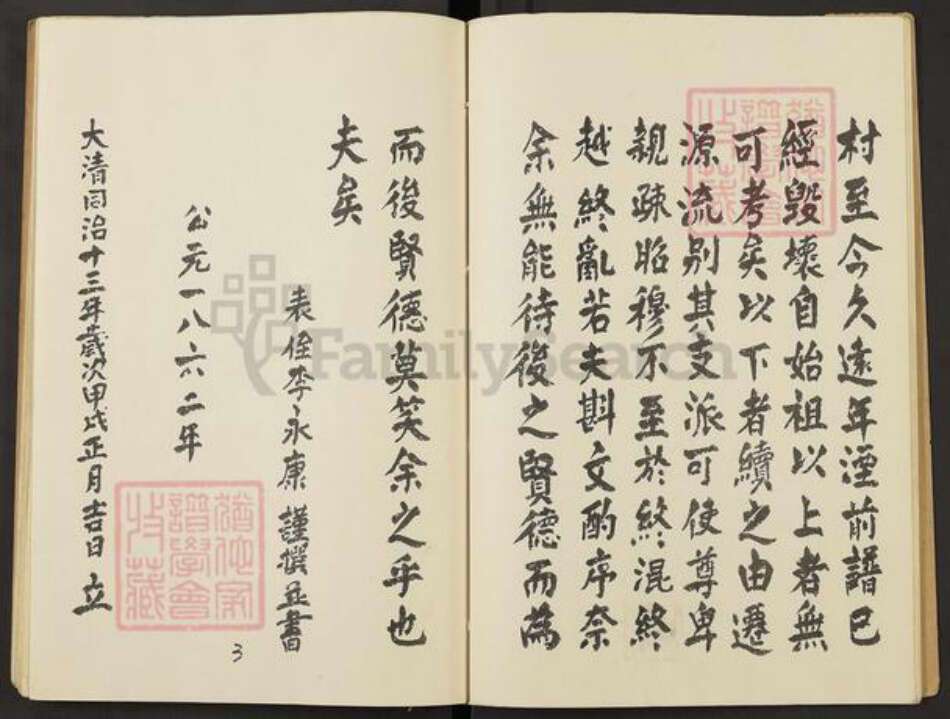 村至今久遠年湮前譜已
經毀壞自始祖以上者無
可考矣以下者續之由遷
源流别其支派可使尊卑
親疎昭穆不至於終混終
越終亂若夫斟文酌序奈
余無能待後之賢德而為
而後賢德莫笑余之乎也
夫矣
表侄李永康 謹撰並書
公元一八六二年
大清同治十三年歲次甲戌正月吉日 立
3
FamilySearch